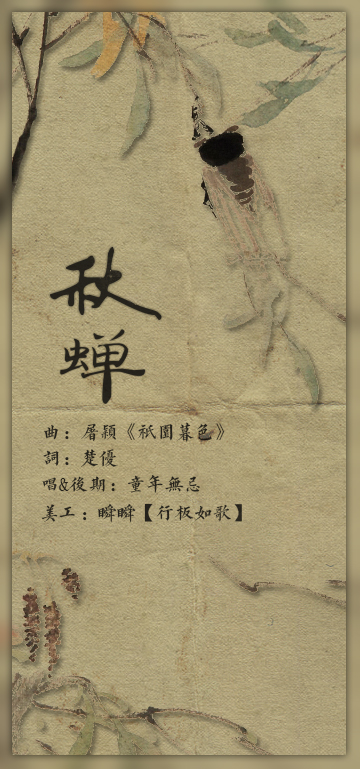 秋
蝉
曲：層穎《祇園暮色》
詞：楚優
唱&後期：童年無忌
美工：瞬瞬【行板如歌】